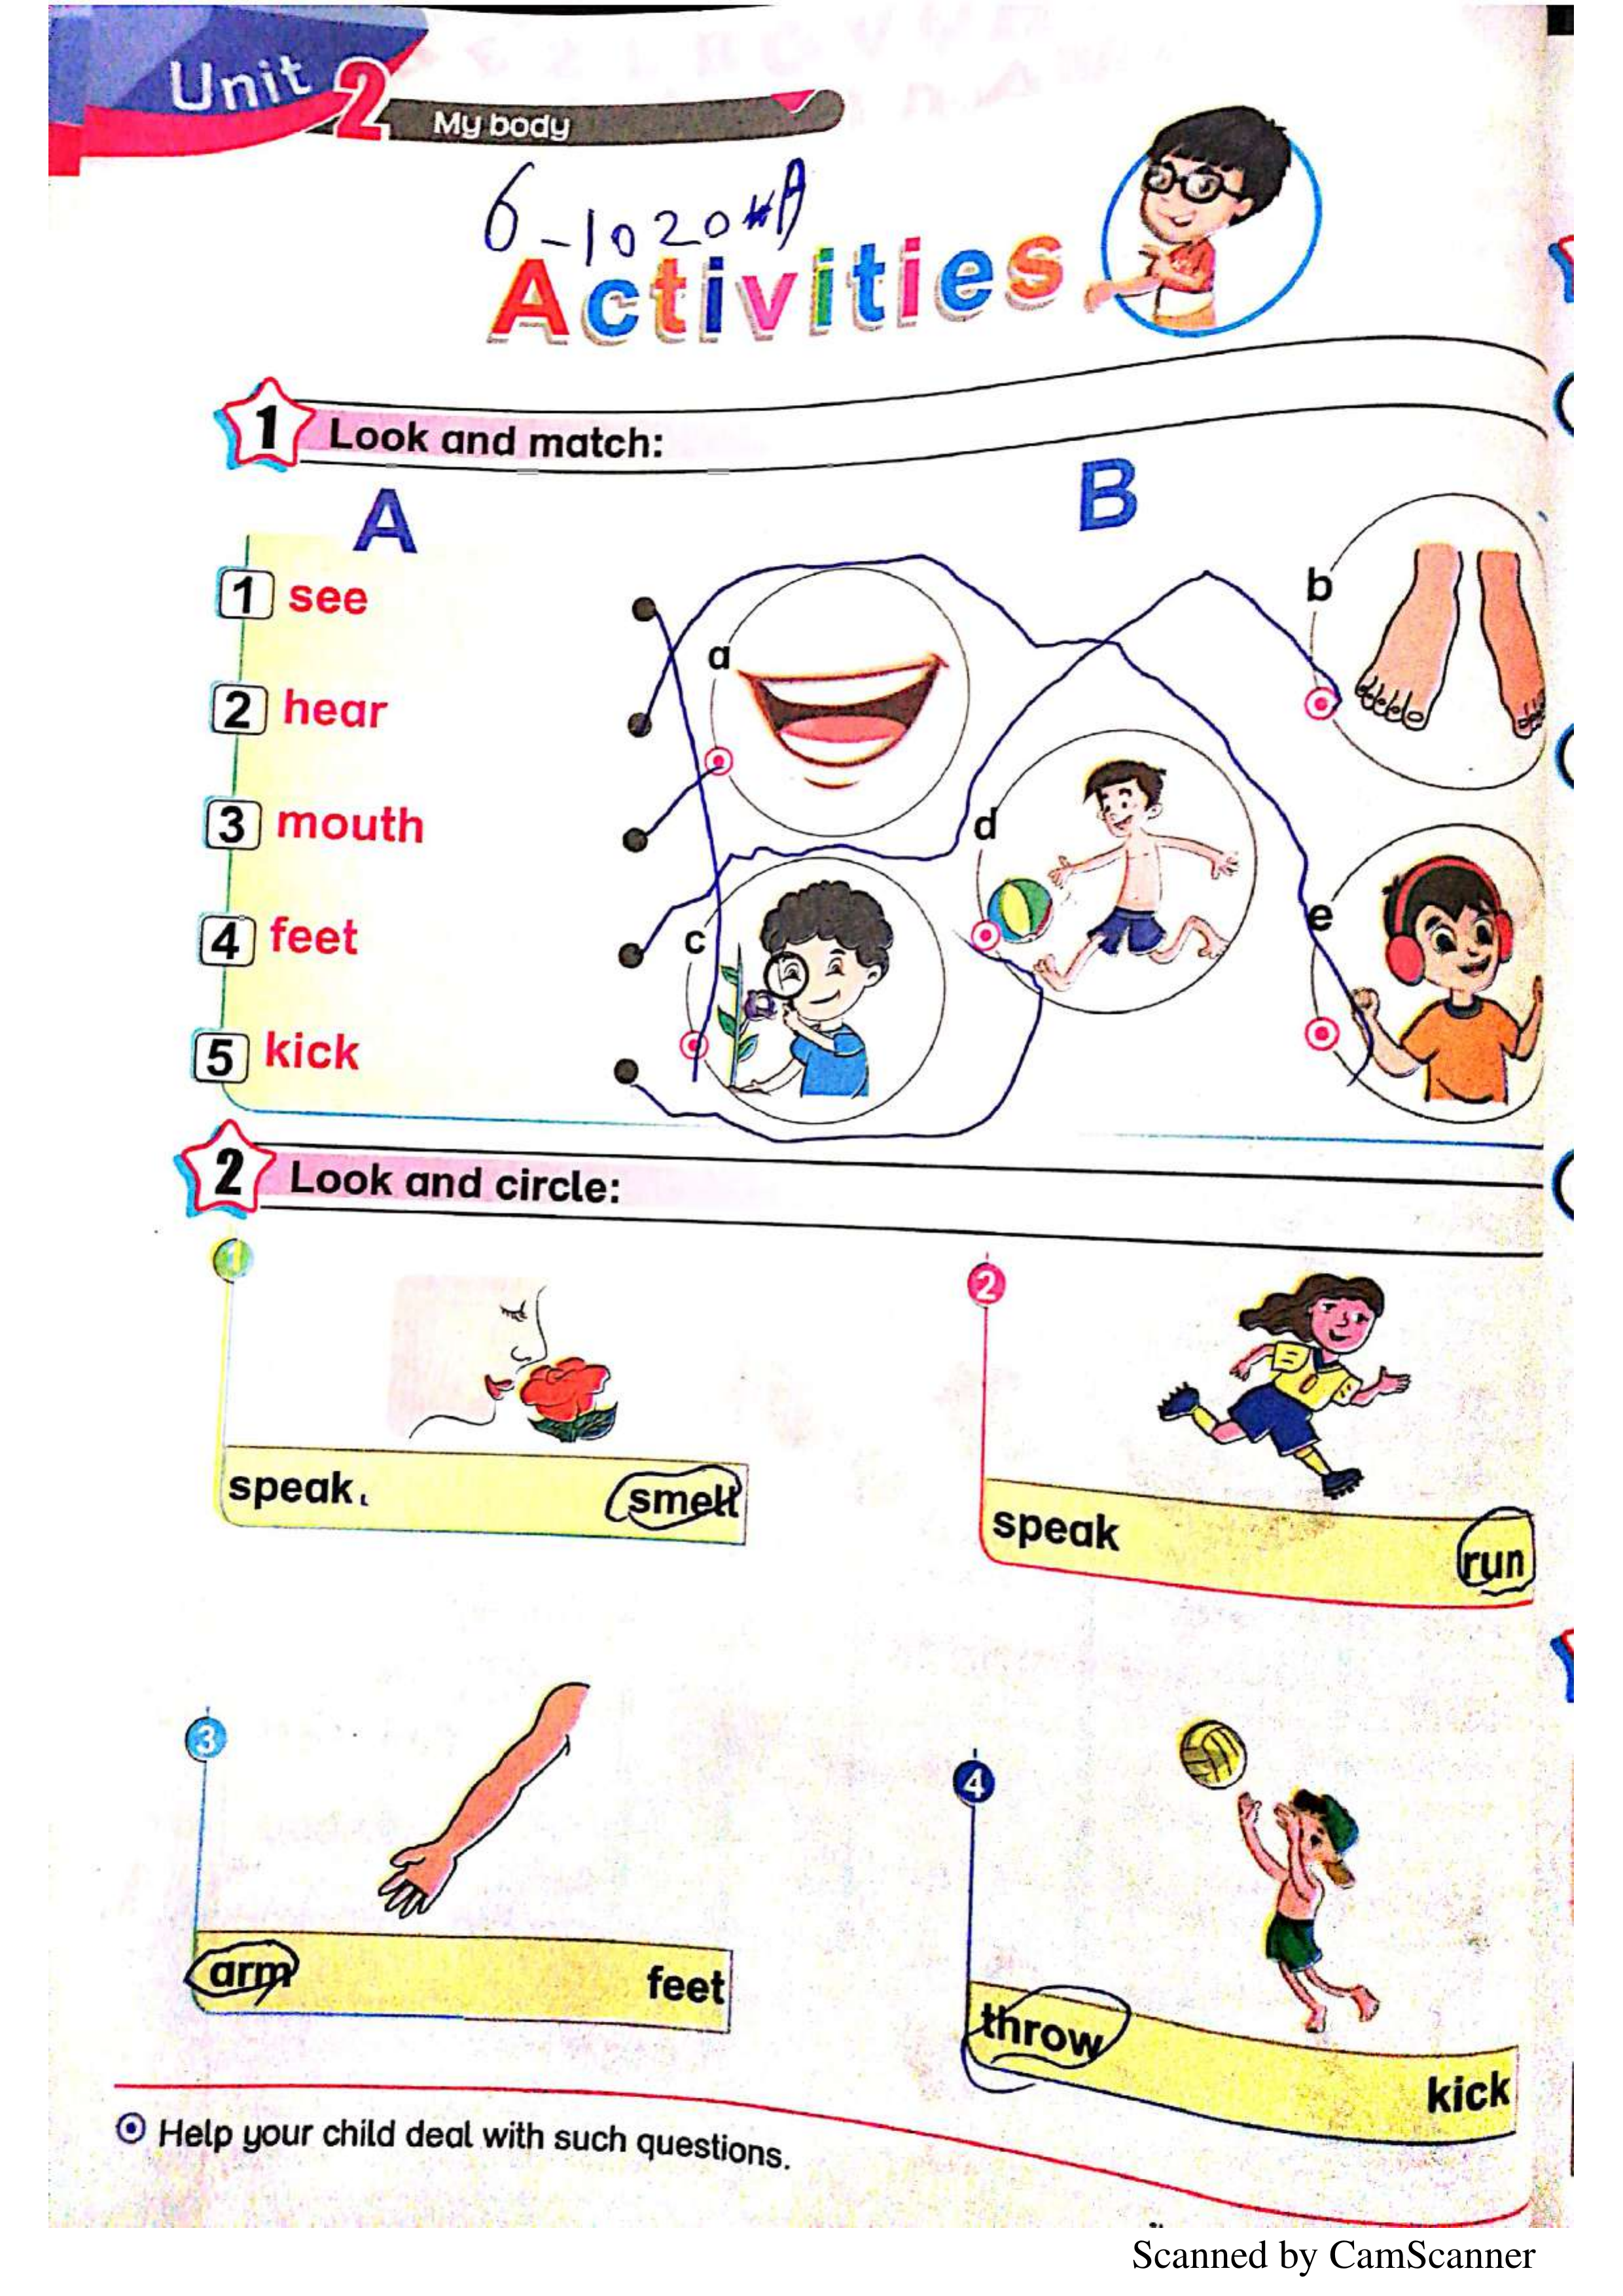 Unit 2
My body
6-1020
Activities
1 Look and match:
A
B
1 see
2 hear
3 mouth
4 feet
5 kick
a
b
c
d
e
2 Look and circle:
1
speak
smell
2
speak
run
3
arm
feet
4
throw
kick
Help your child deal with such questions.
Scanned by CamScanner